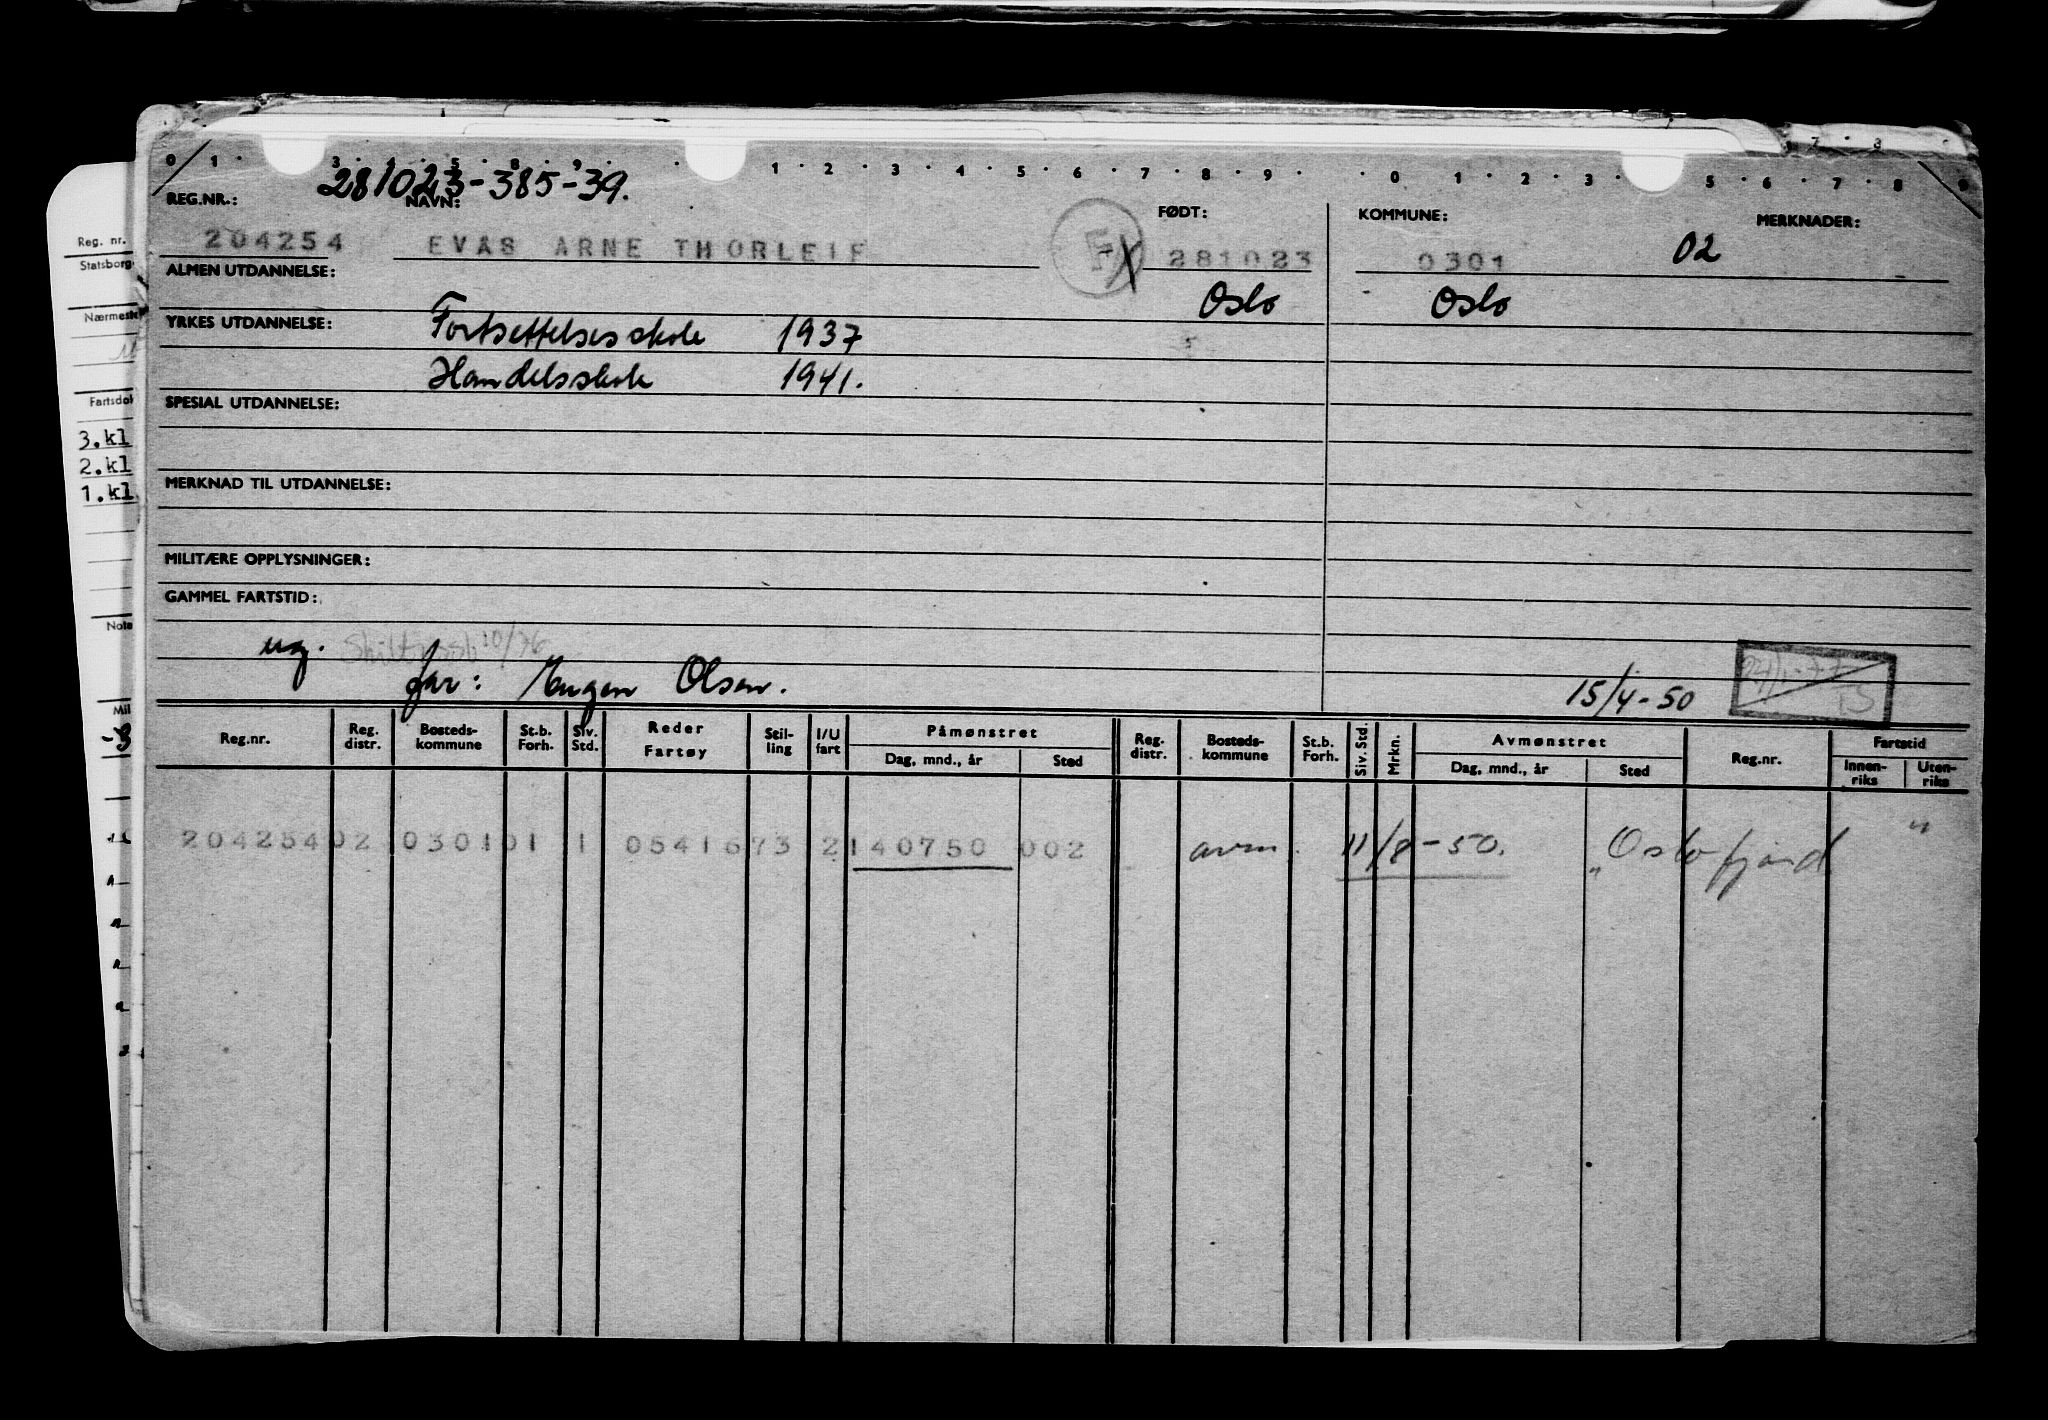 0 1 · 3 · 4 · 5 · 8 · 9 · 1 · 2 · 3 · 4 · 5 · 6 · 7 · 8 · 9 · · 0 · 1 · 2 · 3 5 · 6 · 7 · 8 · 9
281023-385-39.
REG.NR.: NAVN: FØDT: KOMMUNE: MERKNADER:
204254 EVAS ARNE THORLEIF F 281023 0301 02
ALMEN UTDANNELSE: Oslo Oslo
YRKES UTDANNELSE: Fortsettelsesskole 1937
Handelsskole 1941.
SPESIAL UTDANNELSE:
MERKNAD TIL UTDANNELSE:
MILITÆRE OPPLYSNINGER:
GAMMEL FARTSTID:
ug. 10/76
far: Eugen Olsen. 15/4-50
Reg.nr. Reg. distr. Bosteds-kommune St.b. Forh. Siv. Std. Reder Fartøy Stil-ling I/U fart Påmønstret Dag, mnd., år Sted Reg. distr. Bosteds-kommune St.b. Forh. Siv. Std. Mrkn. Avmønstret Dag, mnd., år Sted Reg.nr. Fartstid Innen-riks Uten-riks
204254 02 0301 01 1 0541673 2 140750 002 avm. 11/8-50. "Oslofjord"
Reg. nr.
Statsborg
Nærmeste
Fartsdok
3.kl
2.kl
1.kl
Nota
Mil
-3